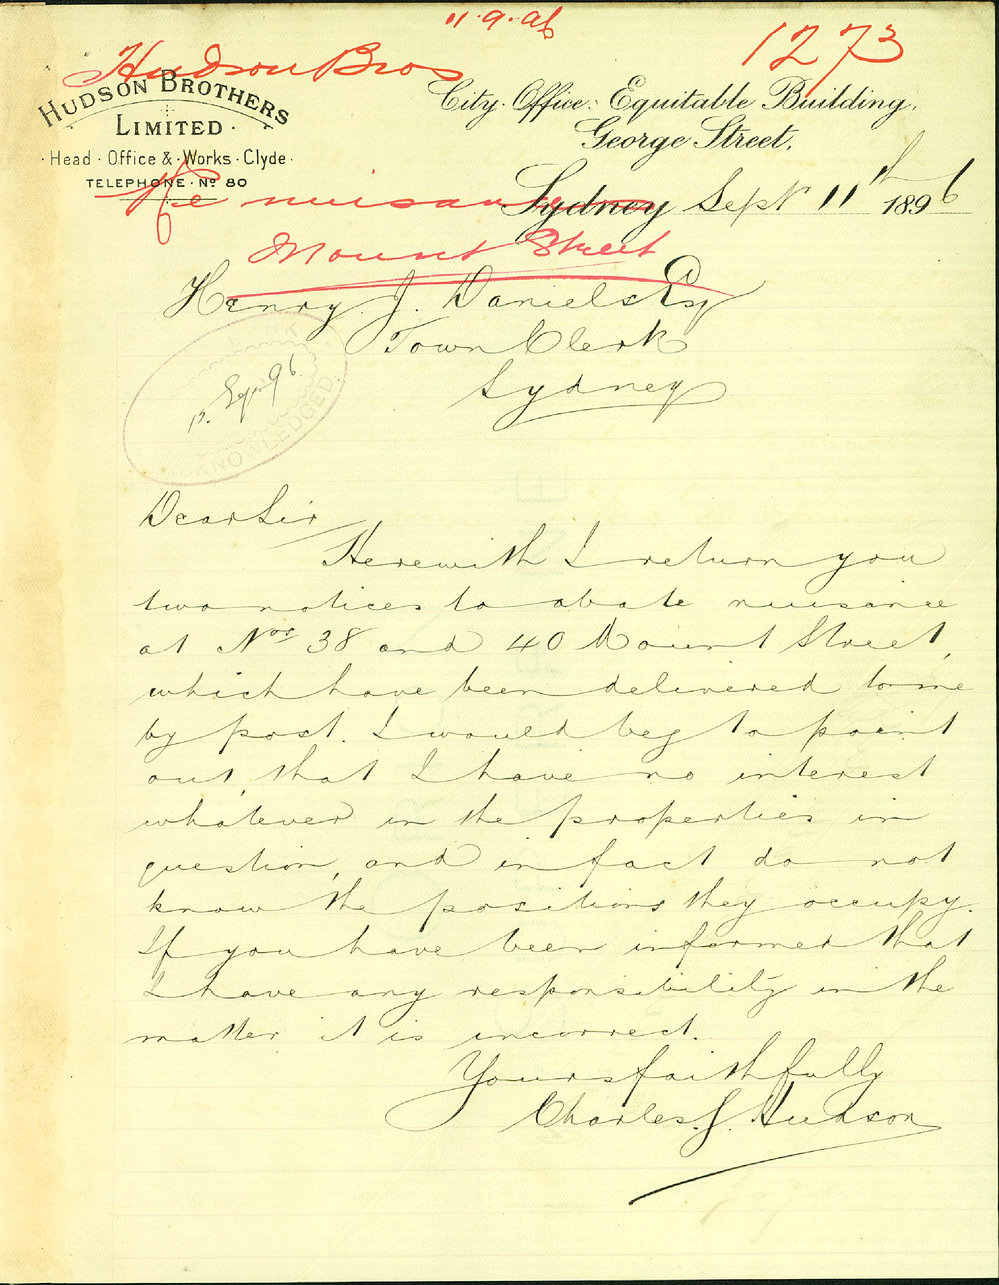 11.9.96
1273
Hudson Bros
HUDSON BROTHERS
LIMITED
Head Office & Works Clyde
TELEPHONE No 80
City Office: Equitable Building,
George Street,
Re nuisance
Sydney Sept 11th 1896
Mount Street
Henry J. Daniels Esq
Town Clerk
Sydney
Sep 96
ACKNOWLEDGED
Dear Sir
Herewith I return you
two notices to abate nuisance
at Nos 38 and 40 Mount Street,
which have been delivered to me
by post. I would beg to point
out, that I have no interest
whatever in the properties in
question, and in fact do not
know the positions they occupy.
If you have been informed that
I have any responsibility in the
matter it is incorrect.
Yours faithfully
Charles. J. Hudson